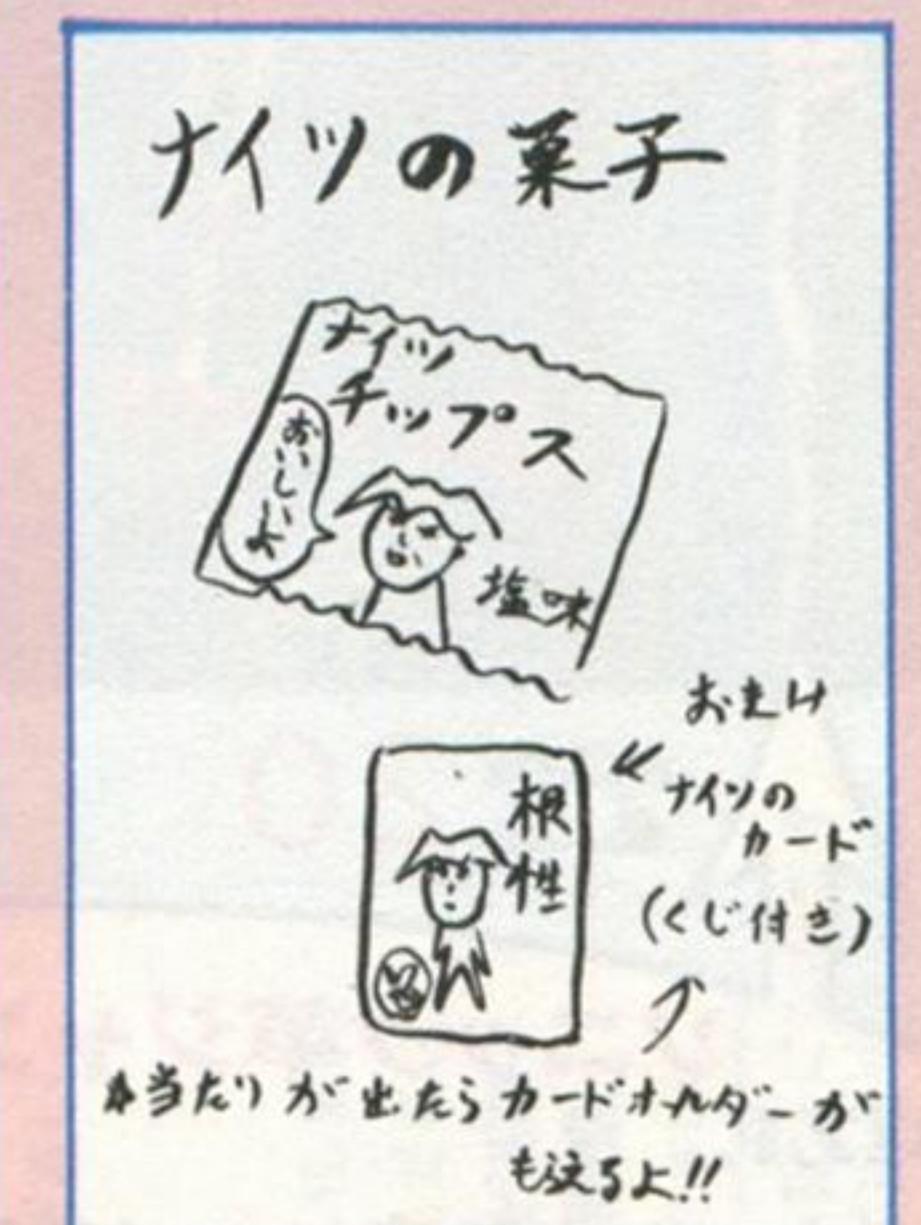 ナイツの菓子
ナイツ
チップス
おいしいよ
塩味
おまけ
ナイツの
カード
(くじ付き)
根
性
当たりが出たらカードホルダーが
もらえるよ!!